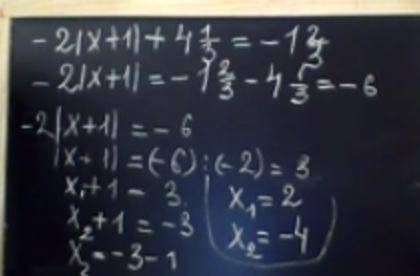 -2|x+1|+4 1/3 = -1 2/3
-2|x+1| = -1 2/3 - 4 1/3 = -6
-2|x+1| = -6
|x+1| = (-6):(-2) = 3
x₁+1 = 3 x₁ = 2
x₂+1 = -3 x₂ = -4
x₂ = -3-1